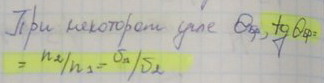 При некотором угле θэф, tg θэф=
= n₂/n₁ = σ₁/σ₂